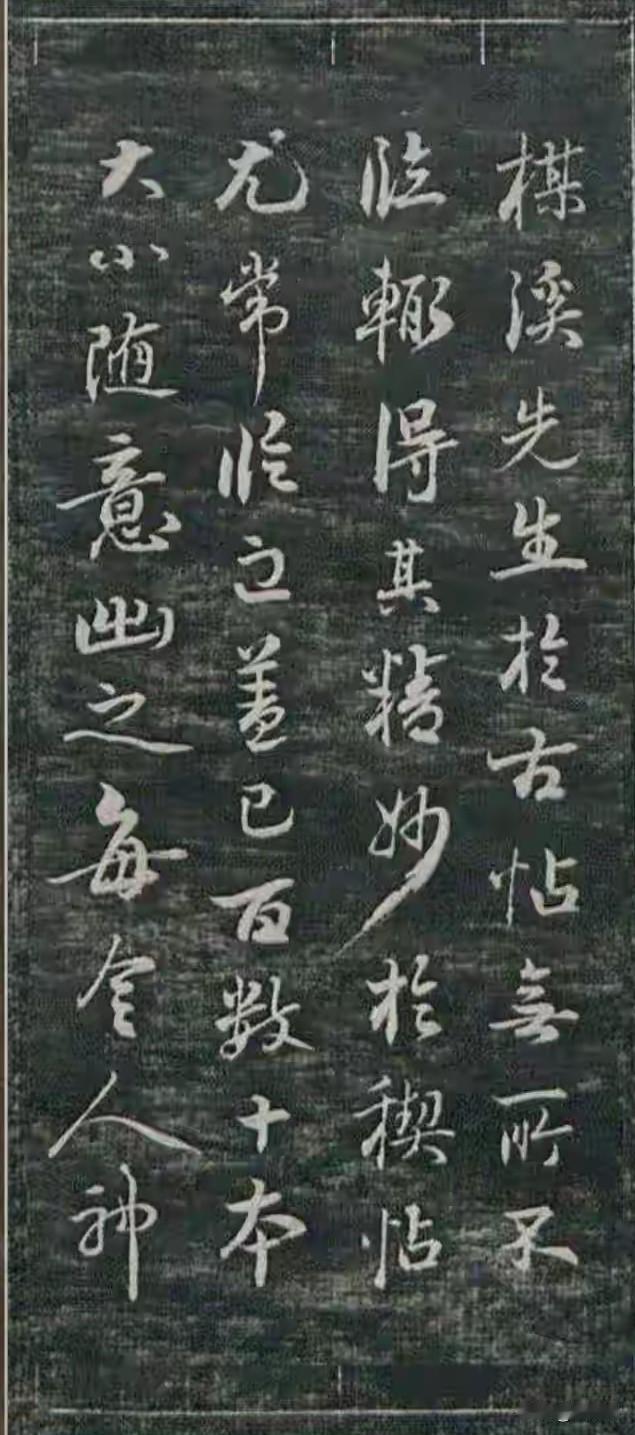 楳溪先生於古帖無所不
臨輙得其精妙於稧帖
尤常臨之蓋已百數十本
大小随意出之每令人神